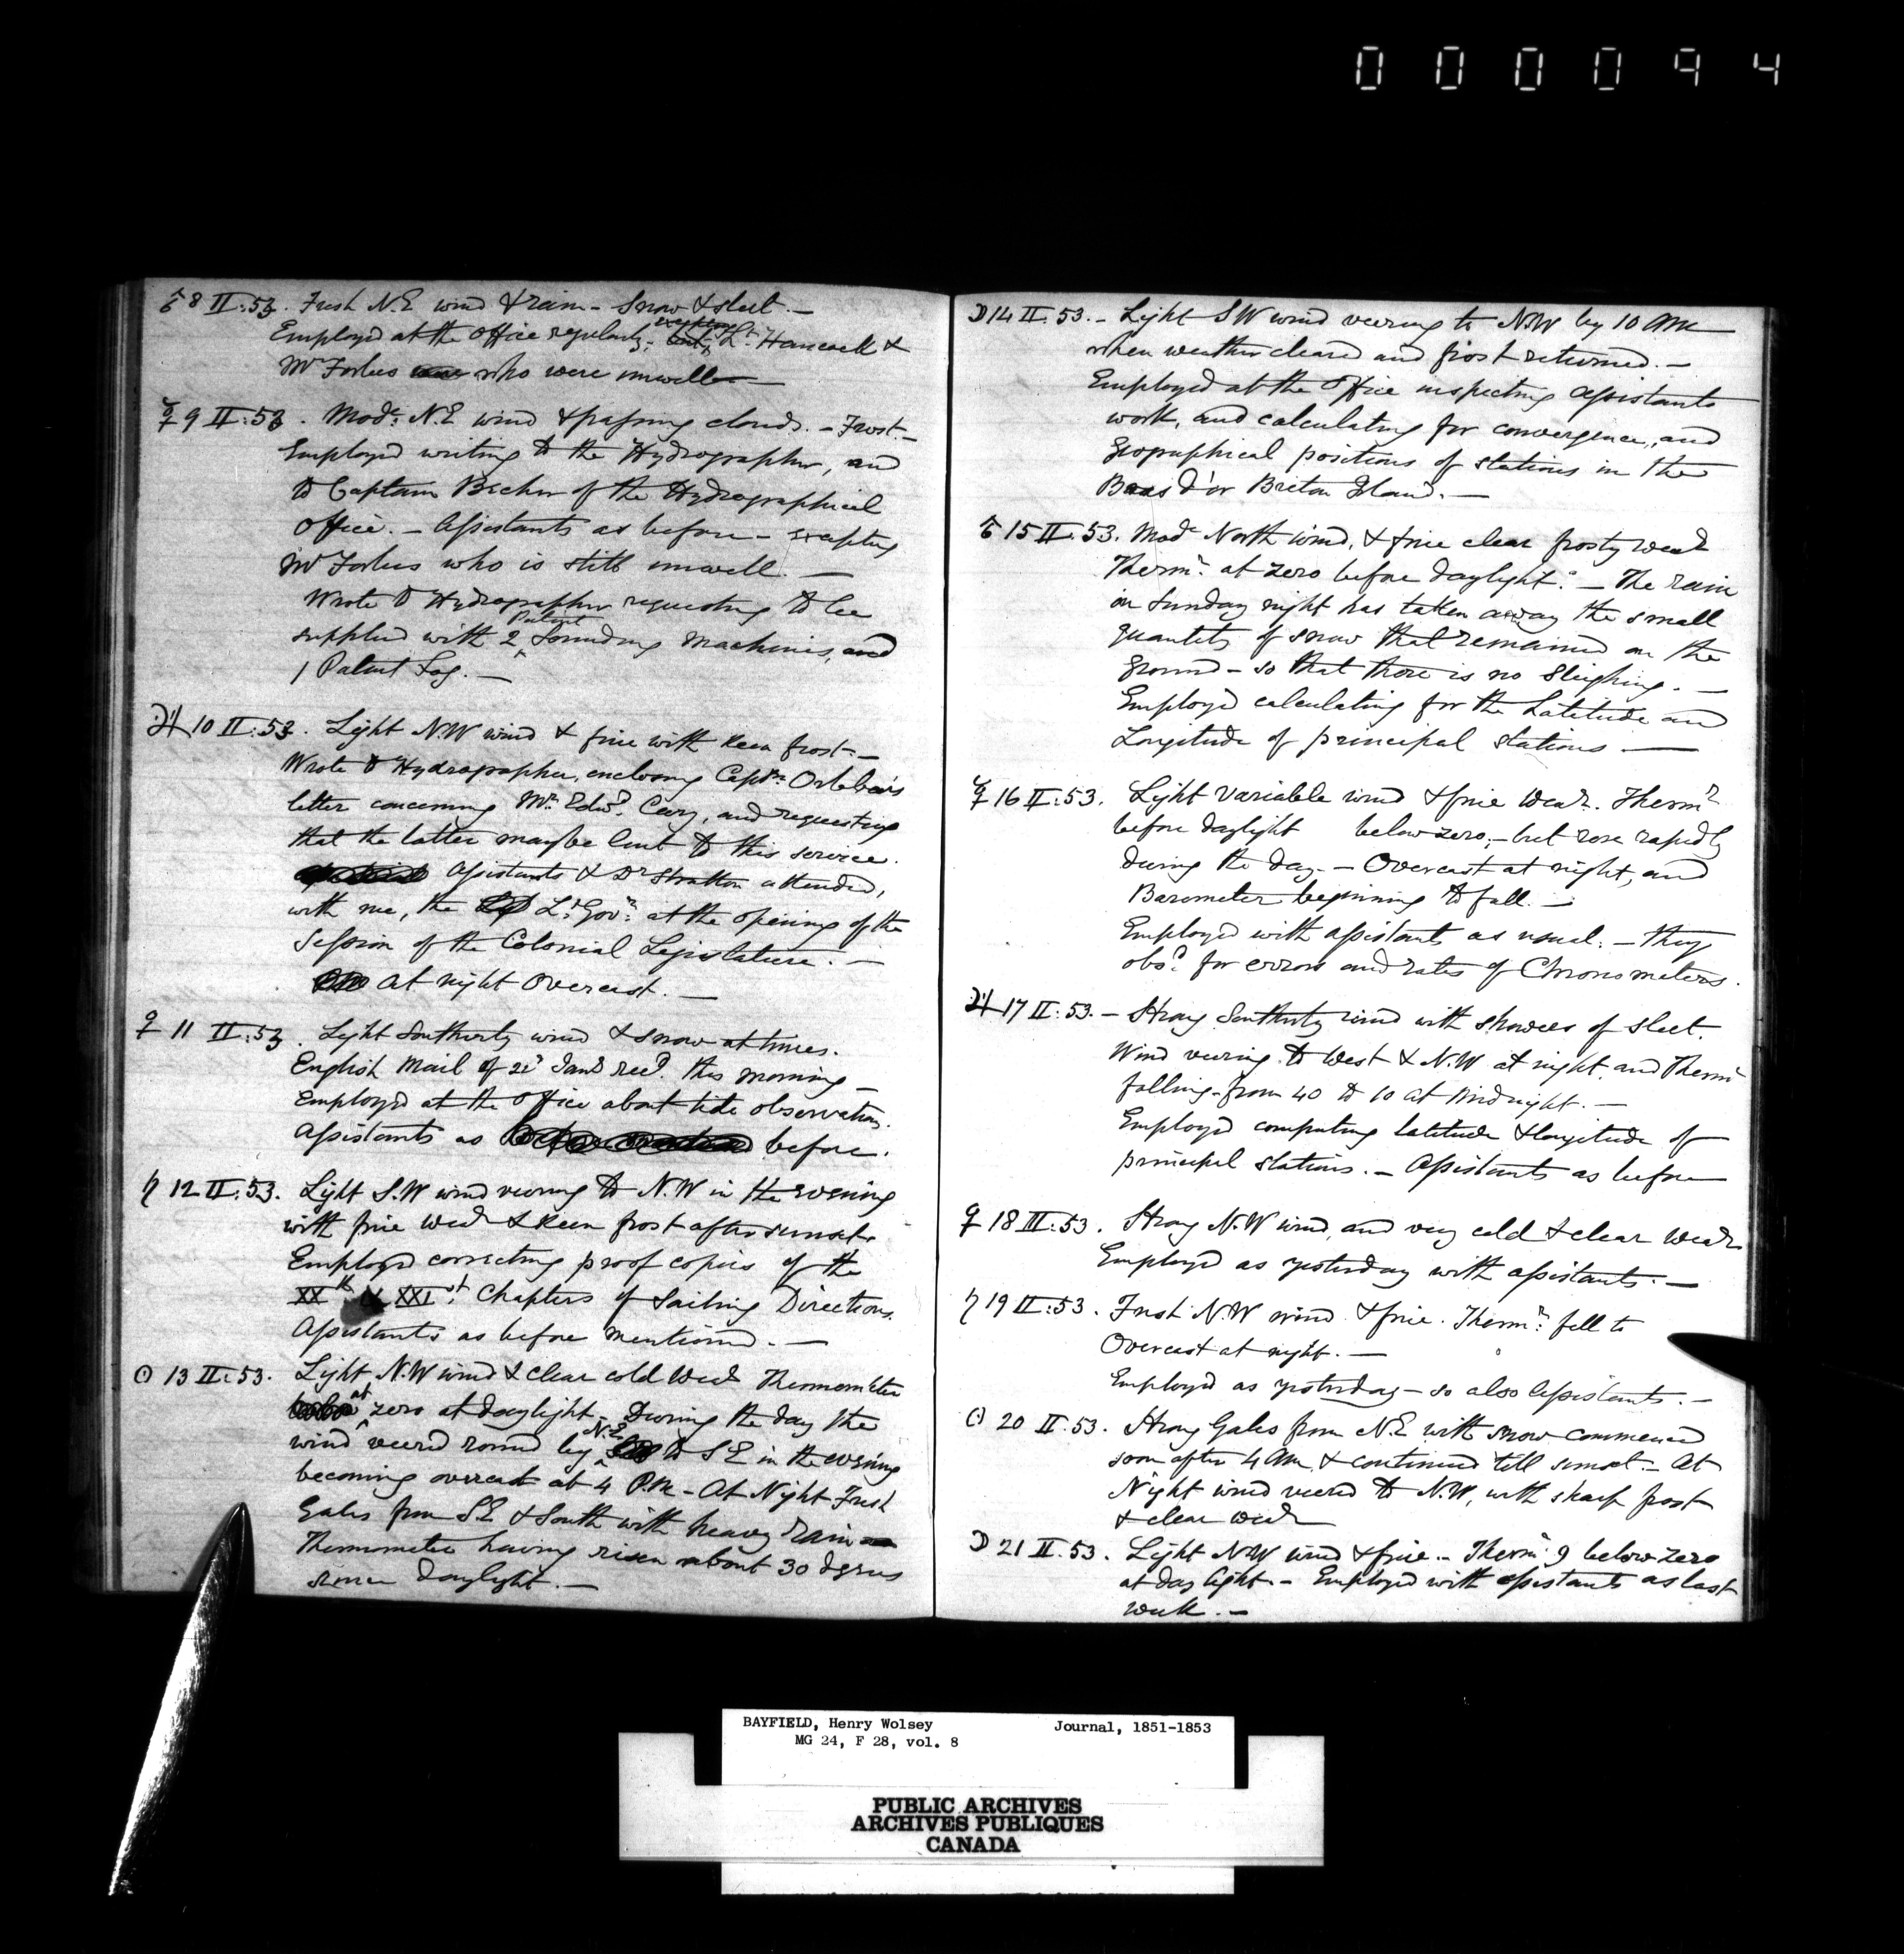 000094
♂ 8 II:53. Fresh N.E wind & rain - Snow & sleet. -
Employed at the Office regularly; excepting Lt. Hancock &
Mr Forbes who were unwell -
☿ 9 II:53. Modt. N.E wind & passing clouds. - Frost. -
Employed writing to the Hydrographer, and
to Captain Becher of the Hydrographical
Office. - Assistants as before - excepting
Mr Forbes who is still unwell. -
Wrote to Hydrographer requesting to be
supplied with 2 Patent Sounding Machines, and
1 Patent Log. -
♃ 10 II:53. Light N.W wind & fine with keen frost. -
Wrote to Hydrographer, enclosing Captn. Orlebar's
letter concerning Mr. Edwd. Cary, and requesting
that the latter may be lent to this service.
Assistants & Dr Stratton attended,
with me, the Lt. Govr. at the opening of the
Session of the Colonial Legislature. -
at night Overcast. -
♀ 11 II:53. Light Southerly wind & snow at times.
English Mail of Jany recd. this morning -
Employed at the Office about tide observations.
Assistants as before.
♄ 12 II:53. Light S.W wind veering to N.W in the evening
with fine wear & keen frost after sunset.
Employed correcting proof copies of the
XXth & XXIst. Chapters of Sailing Directions.
Assistants as before mentioned. -
☉ 13 II:53. Light N.W wind & clear cold wear Thermometer
at zero at daylight. During the day the
wind veered round by N.E to S E in the evening
becoming overcast at 4 P.M - At Night Fresh
Gales from SE & South with heavy rain
Thermometer having risen about 30 degrees
since daylight. -
☽ 14 II.53. - Light SW wind veering to N.W by 10 AM
when weather cleared and frost returned. -
Employed at the Office inspecting assistants
work, and calculating for convergence, and
Geographical positions of stations in the
Bras d'or Breton Island. -
♂ 15 II.53. Modt North wind, & fine clear frosty wear
Thermr. at zero before daylight. - The rain
on Sunday night has taken away the small
quantity of snow that remained on the
ground - so that there is no Sleighing. -
Employed calculating for the Latitude and
Longitude of principal stations -
☿ 16 II:53. Light variable wind & fine wear. Thermr
before daylight below zero; - but rose rapidly
during the day. - Overcast at night, and
Barometer beginning to fall. -
Employed with assistants as usual: - they
obsd. for errors and rates of Chronometers.
♃ 17 II:53. - Strong Southerly wind with showers of sleet.
Wind veering to West & N.W at night, and Thermr
falling from 40 to 10 at Midnight. -
Employed computing latitude & longitude of
principal stations. - Assistants as before
♀ 18 III:53. Strong N.W wind, and very cold & clear wear
Employed as yesterday with assistants. -
♄ 19 II:53. Fresh N.W wind & fine. Thermr. fell to
Overcast at night. -
Employed as yesterday - so also Assistants. -
☉ 20 II:53. Strong Gales from N.E with snow commenced
soon after 4 AM & continued till sunset. - At
Night wind veered to N.W, with sharp frost
& clear wear
☽ 21 II.53. Light NW wind & fine. - Thermr 9 below zero
at day light. - Employed with assistants as last
week. -
BAYFIELD, Henry Wolsey Journal, 1851-1853
MG 24, F 28, vol. 8
PUBLIC ARCHIVES
ARCHIVES PUBLIQUES
CANADA